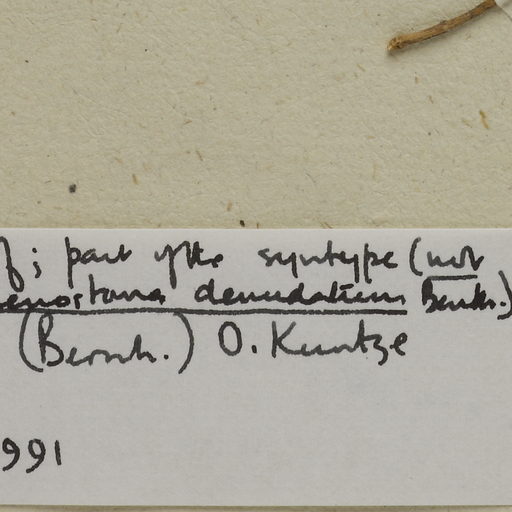 f; part of the syntype (not
emostoma denudatum Benth.)
(Bernh.) O. Kuntze
991